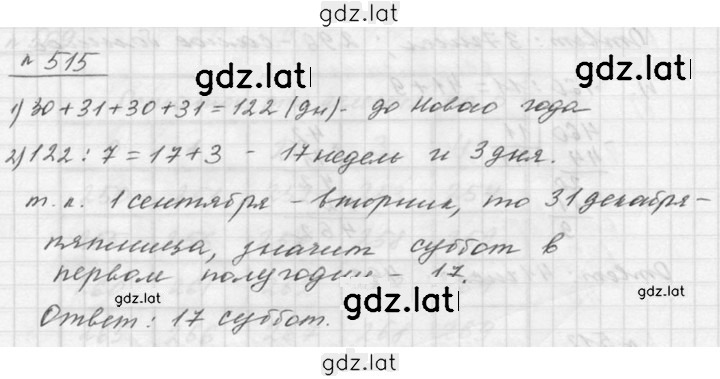 gdz.lat
№ 515
gdz.lat
1) 30+31+30+31=122 (дн) - до Нового года
2) 122 : 7 = 17+3 - 17 недель и 3 дня.
т.к. 1 сентября - вторник, то 31 декабря -
пятница, значит суббот в
первом полугодии - 17.
gdz.lat gdz.lat
Ответ: 17 суббот.
gdz.lat